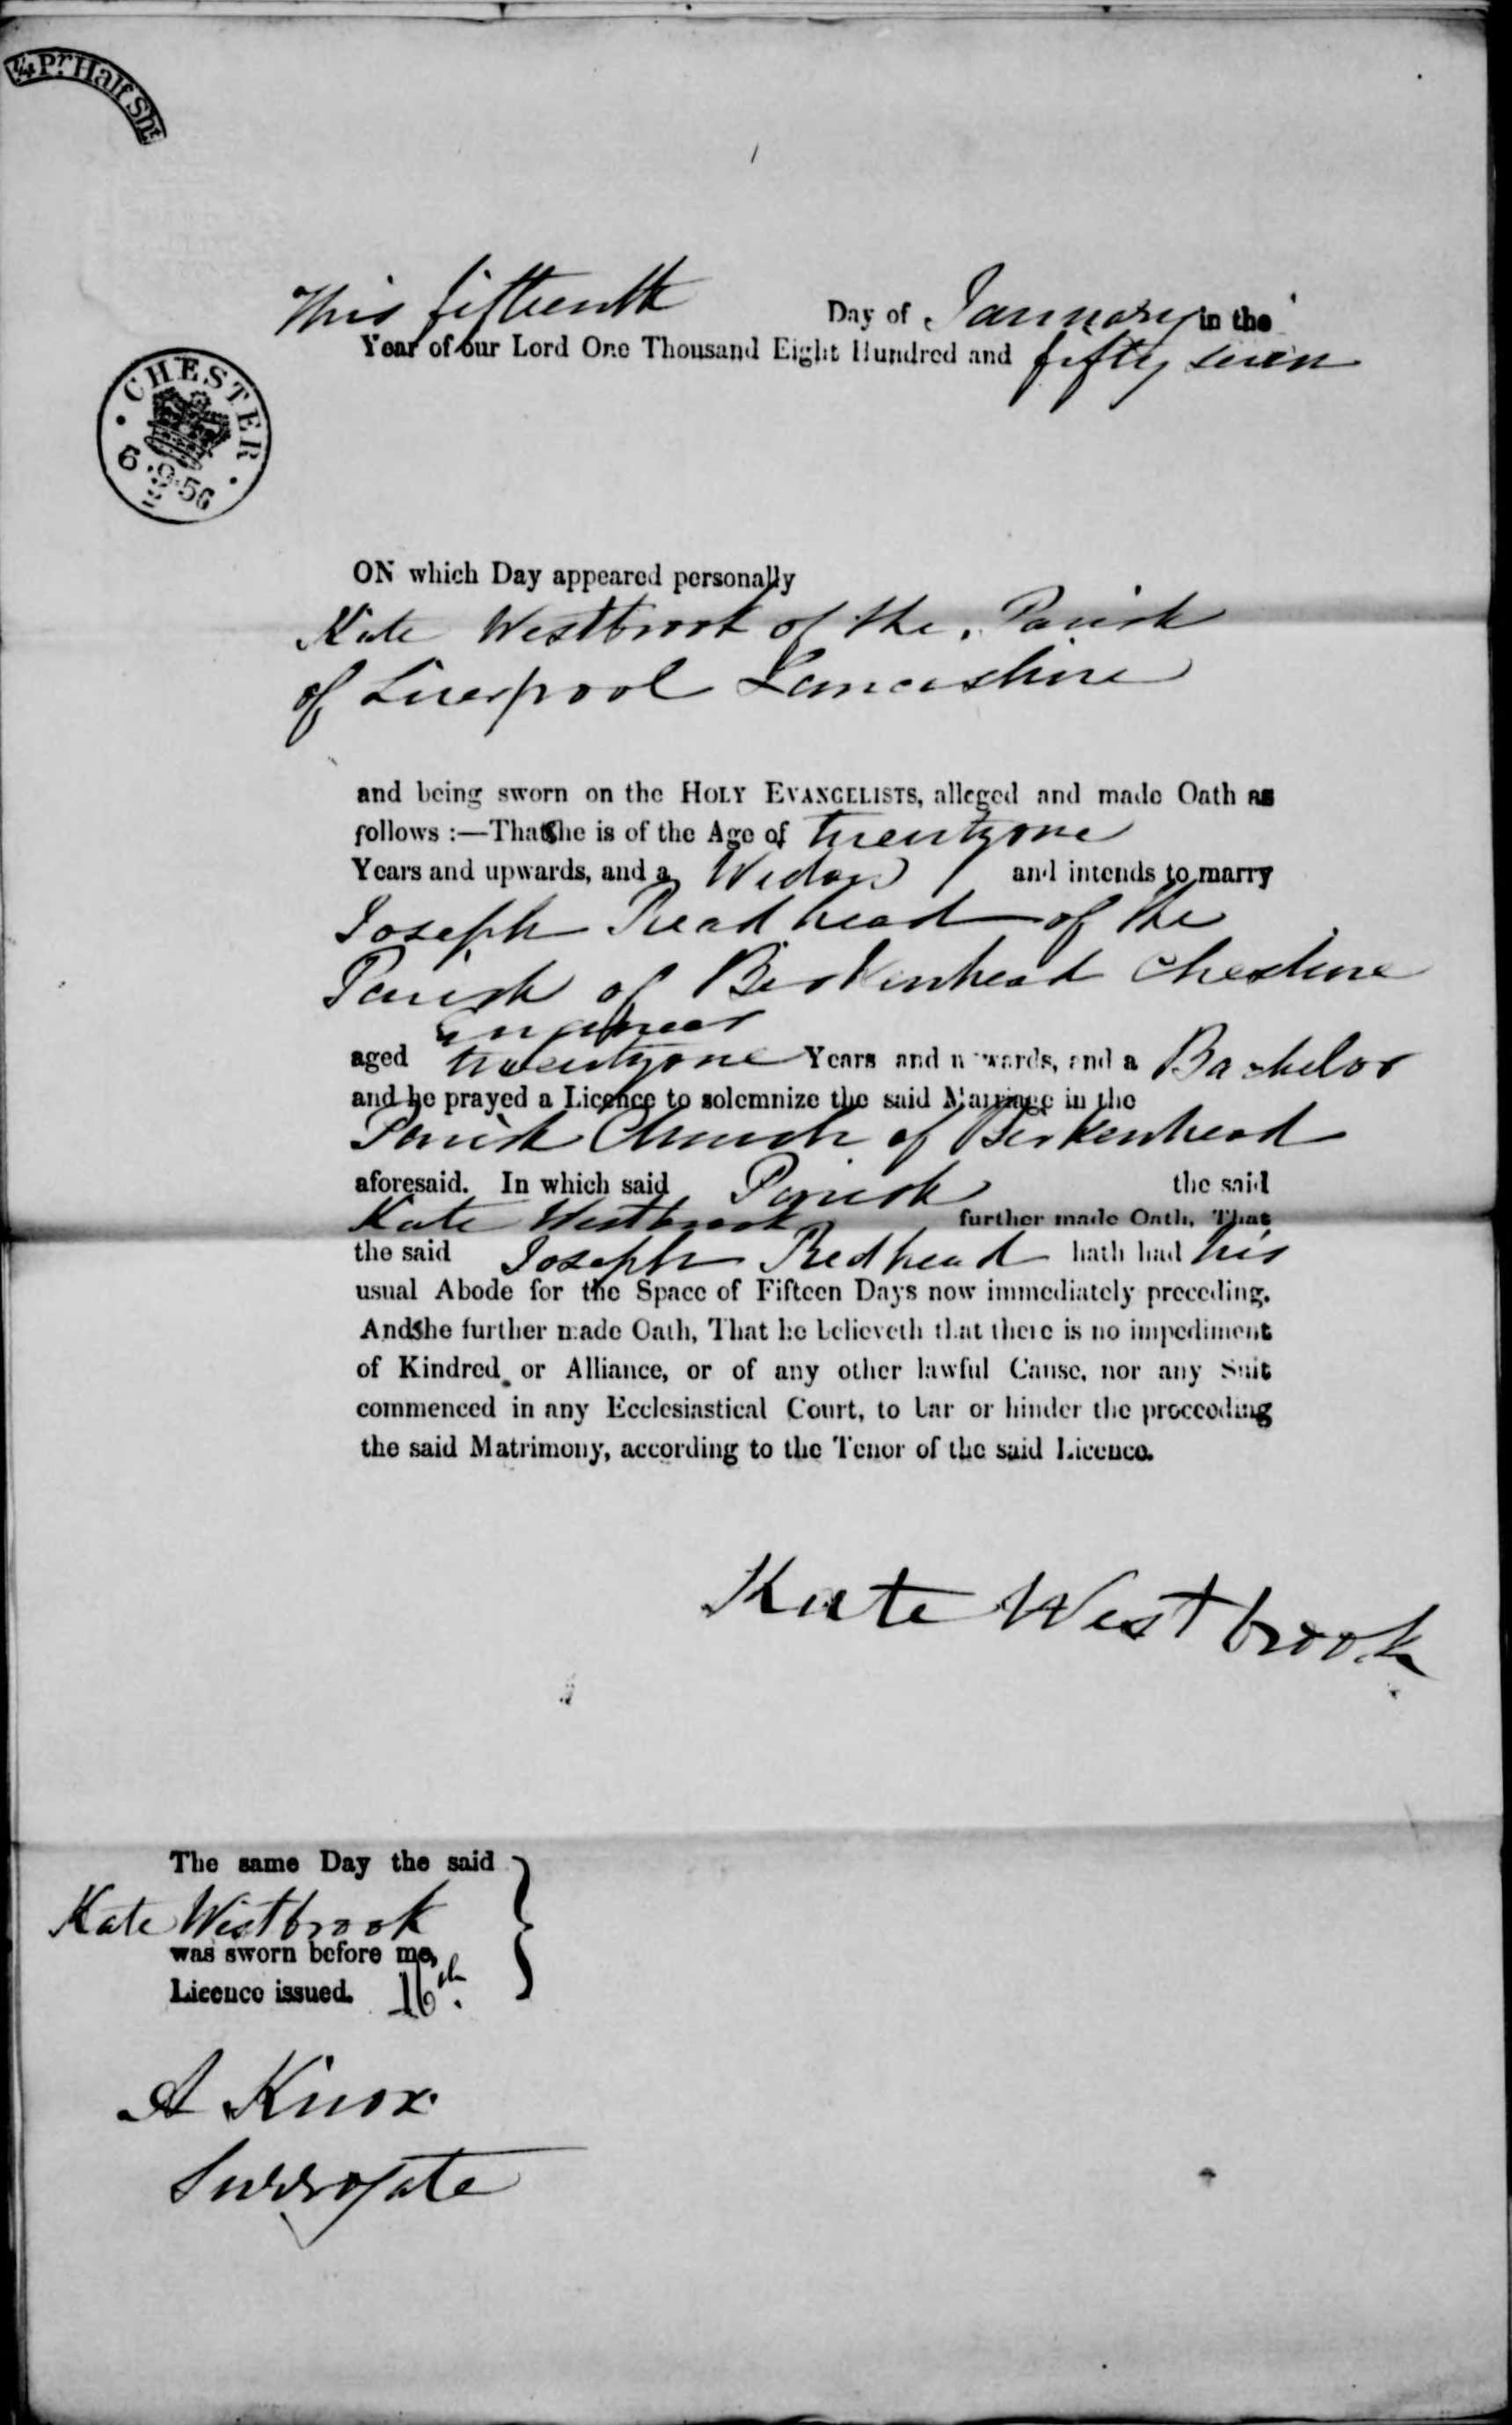 ¼ Pr Half Sht
This fifteenth Day of January in the
Year of our Lord One Thousand Eight Hundred and fifty seven
CHESTER
6.9.56
ON which Day appeared personally
Kate Westbrook of the Parish
of Liverpool Lancashire
and being sworn on the HOLY EVANGELISTS, alleged and made Oath as
follows :—That She is of the Age of twenty one
Years and upwards, and a Widow and intends to marry
Joseph Readhead of the
Parish of Birkenhead Cheshire
Engineer
aged twenty one Years and upwards, and a Bachelor
and he prayed a Licence to solemnize the said Marriage in the
Parish Church of Birkenhead
aforesaid. In which said Parish the said
Kate Westbrook further made Oath, That
the said Joseph Redhead hath had his
usual Abode for the Space of Fifteen Days now immediately preceding.
And She further made Oath, That he believeth that there is no impediment
of Kindred or Alliance, or of any other lawful Cause, nor any Suit
commenced in any Ecclesiastical Court, to bar or hinder the proceeding
the said Matrimony, according to the Tenor of the said Licence.
Kate Westbrook
The same Day the said
Kate Westbrook
was sworn before me,
Licence issued. 16th.
A Knox
Surrogate